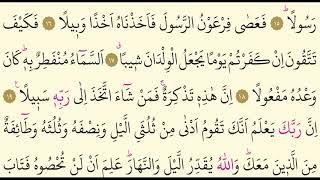 رَسُولًا ۝١٥ فَعَصٰى فِرْعَوْنُ الرَّسُولَ فَاَخَذْنَاهُ اَخْذًا وَبِيلًا ۝١٦ فَكَيْفَ
تَتَّقُونَ اِنْ كَفَرْتُمْ يَوْمًا يَجْعَلُ الْوِلْدَانَ شِيبًا ۝١٧ اَلسَّمَٓاءُ مُنْفَطِرٌ بِهٖ كَانَ
وَعْدُهُ مَفْعُولًا ۝١٨ اِنَّ هٰذِهٖ تَذْكِرَةٌ فَمَنْ شَٓاءَ اتَّخَذَ اِلٰى رَبِّهٖ سَبِيلًا ۝١٩
اِنَّ رَبَّكَ يَعْلَمُ اَنَّكَ تَقُومُ اَدْنٰى مِنْ ثُلُثَيِ الَّيْلِ وَنِصْفَهُ وَثُلُثَهُ وَطَٓائِفَةٌ
مِنَ الَّذِينَ مَعَكَ وَاللّٰهُ يُقَدِّرُ الَّيْلَ وَالنَّهَارَ عَلِمَ اَنْ لَنْ تُحْصُوهُ فَتَابَ